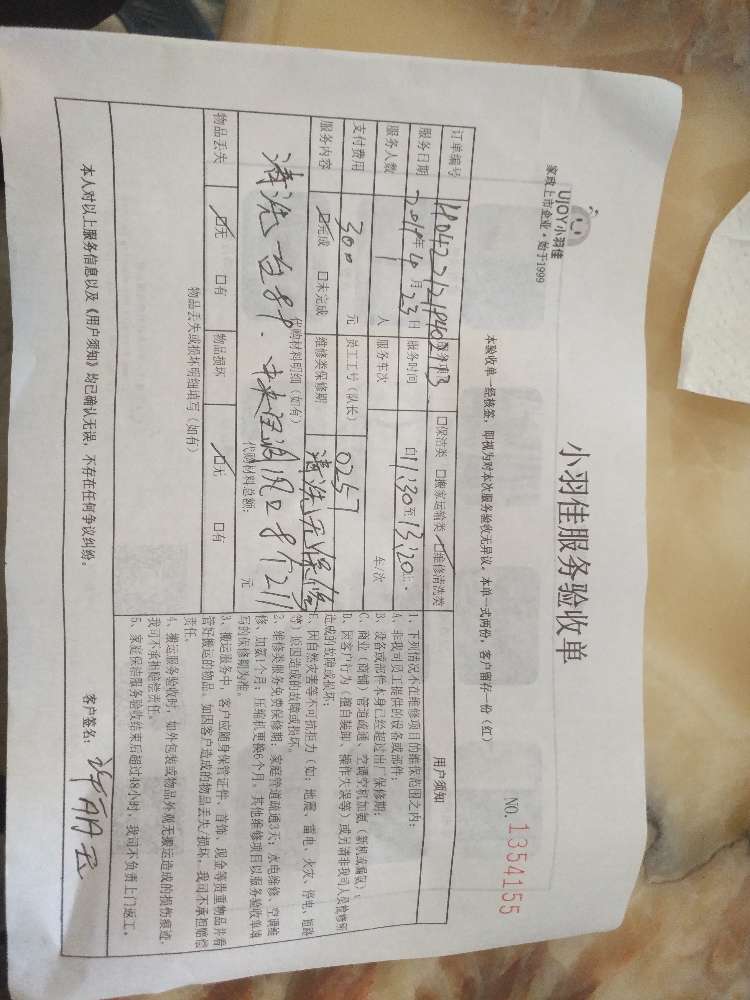 UJOY小羽佳
家政上市企业·始于1999
小羽佳服务验收单
NO. 1354155
本验收单一经核签，即视为对本次服务验收无异议。本单一式两份，客户留存一份（红）
订单编号
服务项目 口保洁类 口搬家运输类 口维修清洗类
服务日期 2019年4月23日 服务时间 自11:30至13:20止
服务人数 1 人 服务车次 车/次
支付费用 300 元 员工工号（队长） 0257
服务内容 口完成 口未完成 维修类保修期 清洗无保修
代购材料明细（如有） 代购材料总额： 元
清洗一台
物品丢失 口无 口有 物品损坏 口无 口有
物品丢失或损坏明细填写（如有）
用户须知
1、下列情况不在维修项目的维保范围之内：
A、非我司员工提供的设备或部件；
B、设备或部件本身已经超过出厂保修期；
C、商业（商铺）管道疏通、空调空机加氨（新机或漏氨）；
D、因客户行为（擅自装卸、操作失误等）或另请非我司人员维修所
造成的故障或损坏；
E、因自然灾害等不可抗拒力（如：地震、雷电、火灾、停电、短路
等）原因造成的故障或损坏。
2、维修类服务免费保修期：家庭管道疏通3天；水电维修、空调维
修、加氨1个月；压缩机更换6个月。其他维修项目以服务验收单填
写的保修期为准。
3、搬运服务中，客户应随身保管证件、首饰、现金等贵重物品并看
管好搬运的物品。如因客户造成的物品丢失/损坏，我司不承担赔偿
责任。
4、搬运服务验收时，如外包装或物品外观无搬运造成的损伤痕迹，
我司不承担赔偿责任。
5、家庭保洁服务验收结束后超过48小时，我司不负责上门返工。
本人对以上服务信息以及《用户须知》均已确认无误，不存在任何争议纠纷。
客户签名：